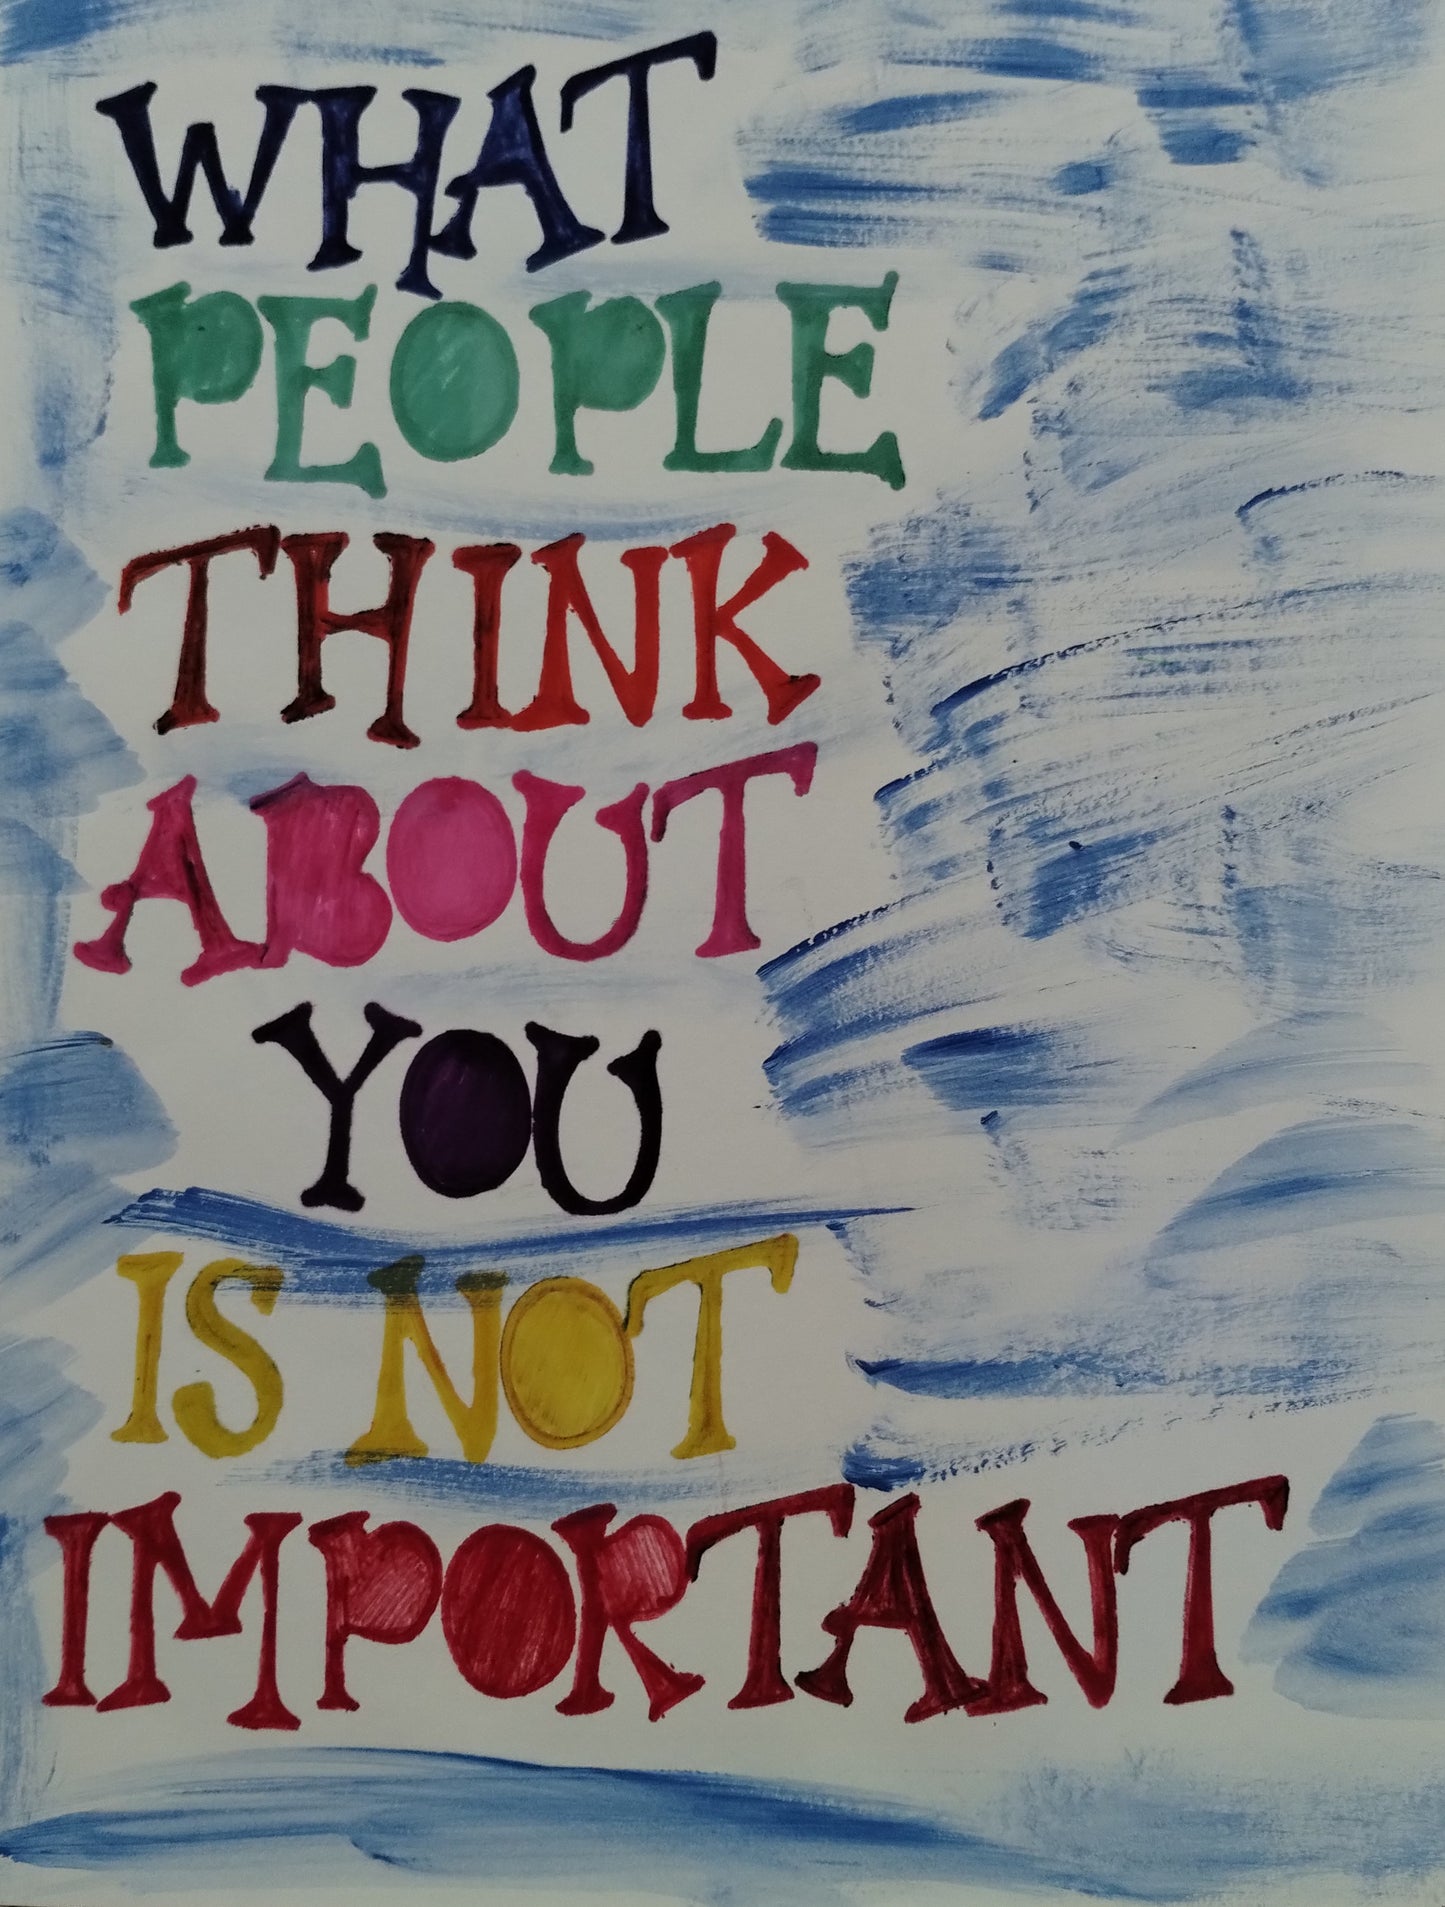 WHAT
PEOPLE
THINK
ABOUT
YOU
IS NOT
IMPORTANT